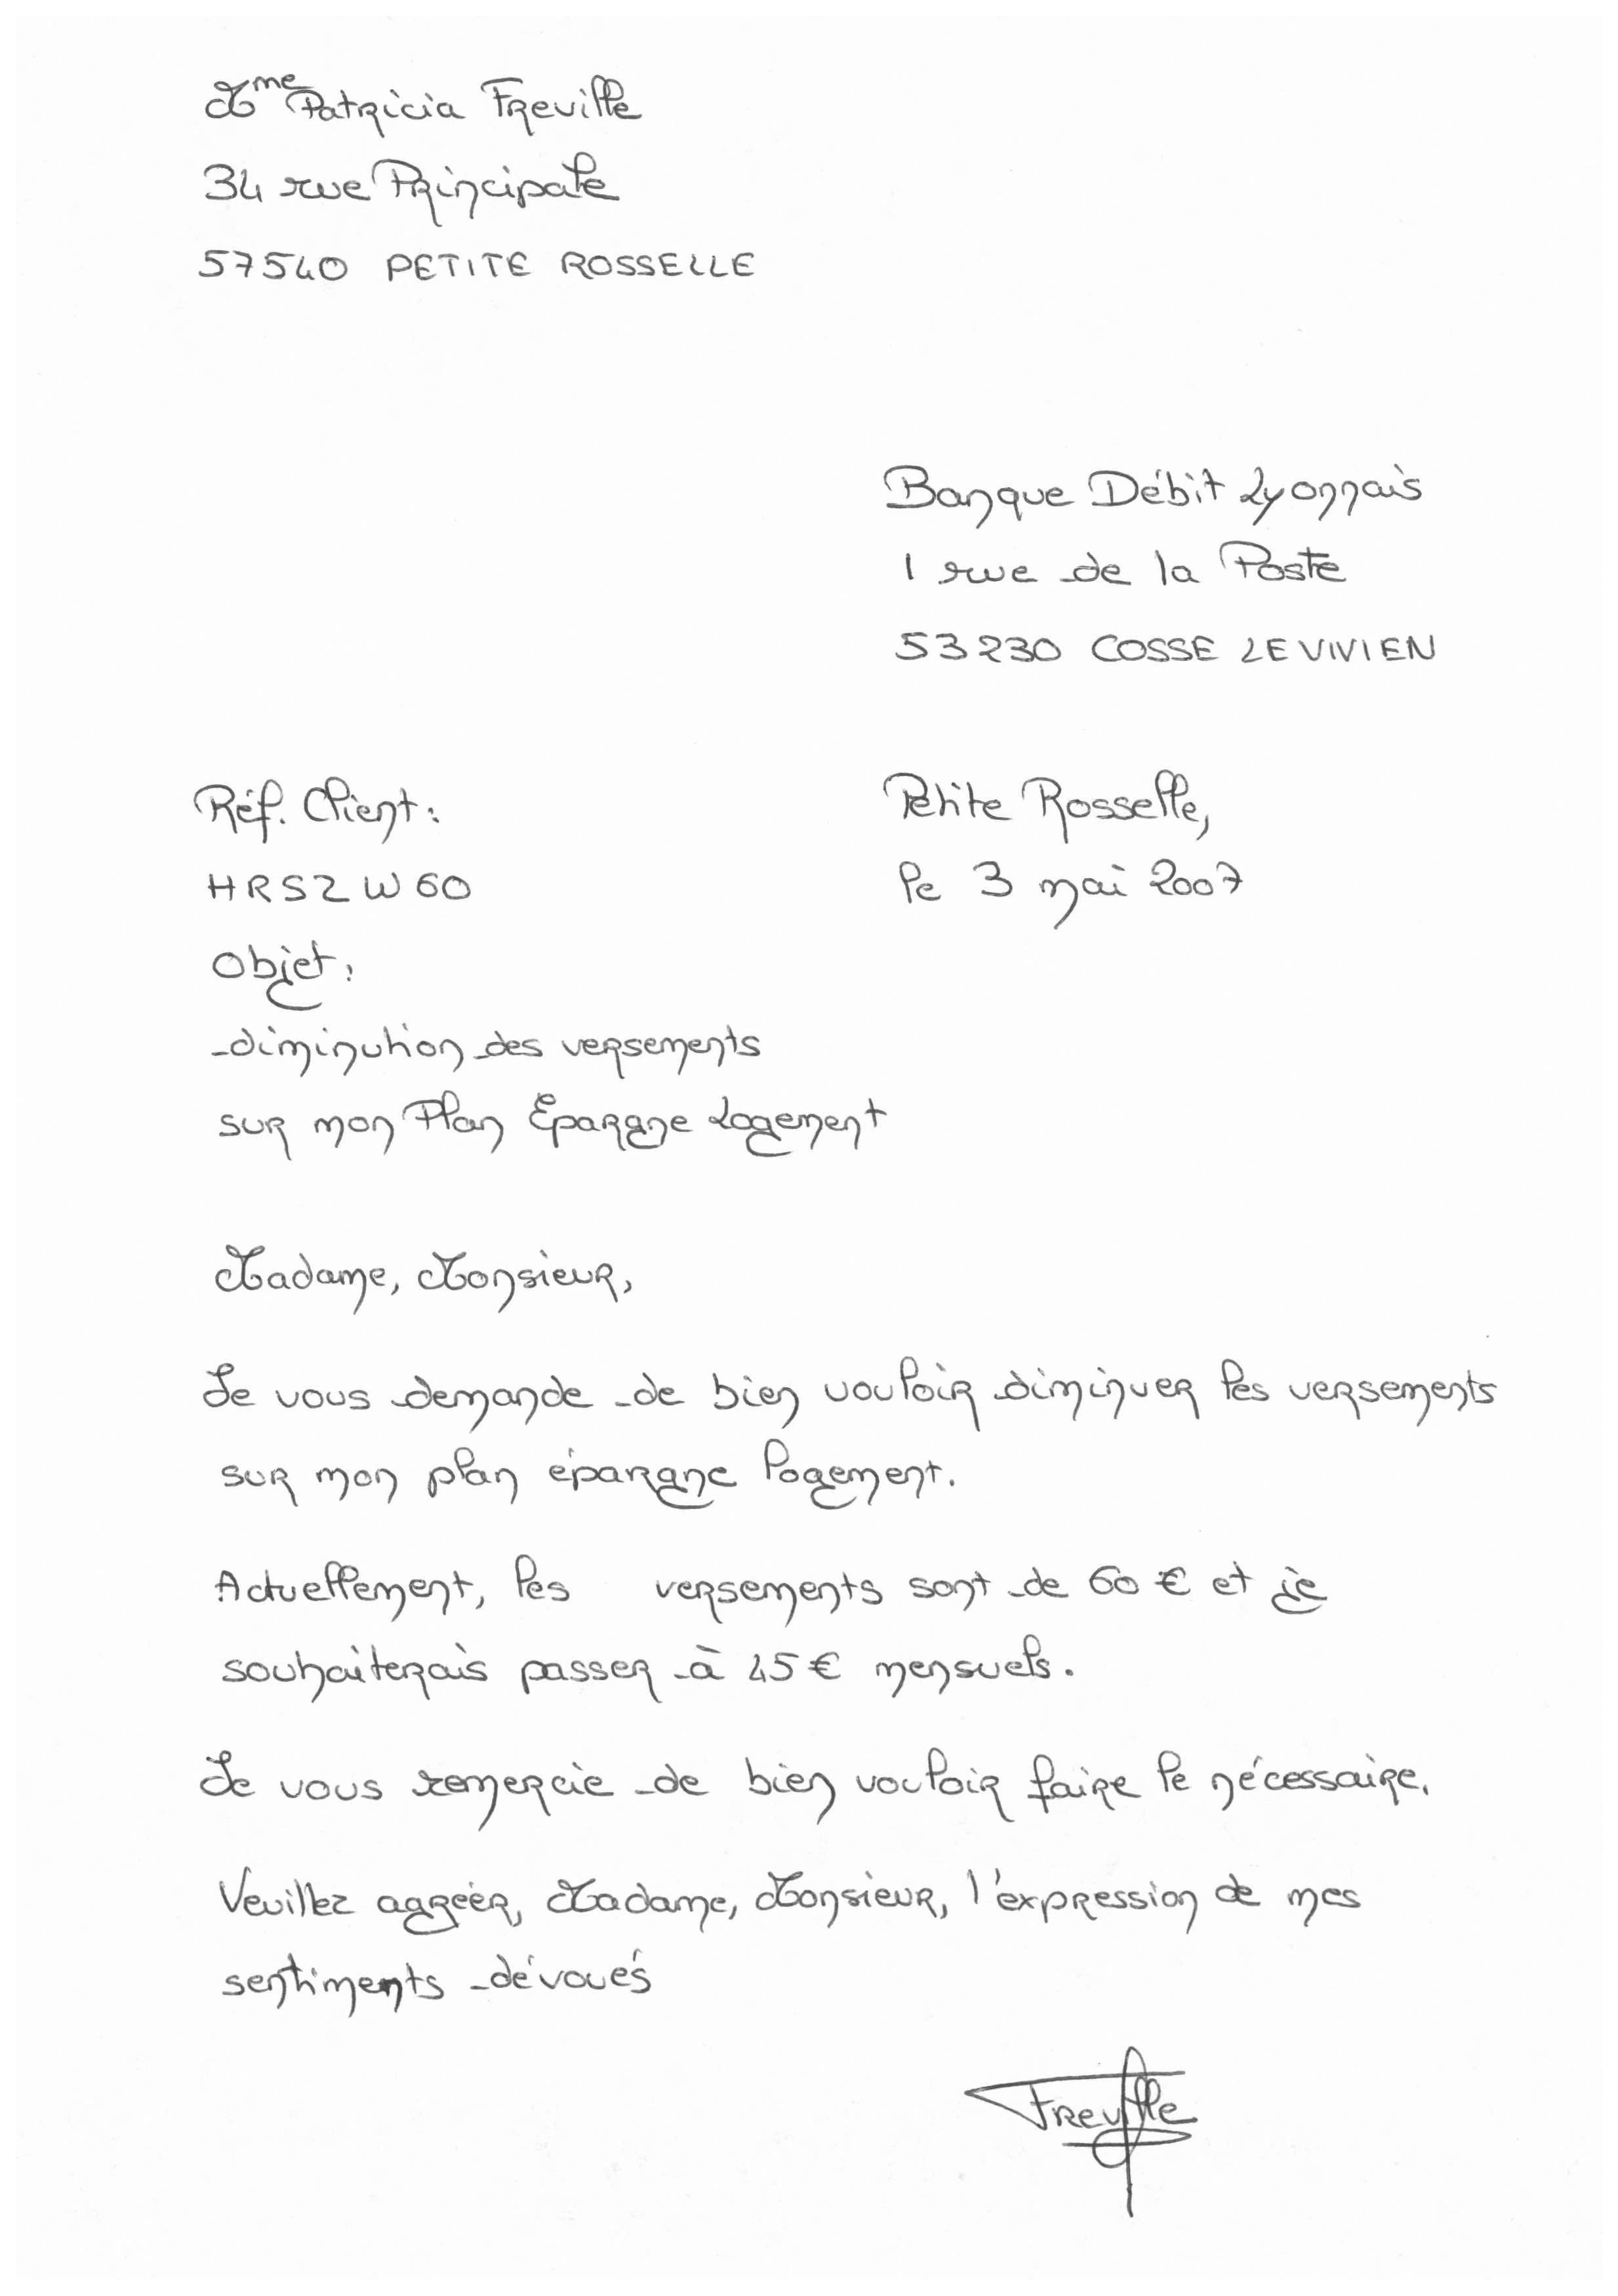 Mme Patricia Freville
34 rue Principale
57540 PETITE ROSSELLE
Banque Débit Lyonnais
1 rue de la Poste
53230 COSSE LE VIVIEN
Réf. Client:
HRSZW60
Petite Rosselle,
le 3 mai 2007
Objet:
diminution des versements
sur mon Plan Epargne Logement
Madame, Monsieur,
Je vous demande de bien vouloir diminuer les versements
sur mon plan épargne logement.
Actuellement, les versements sont de 60 € et je
souhaiterais passer à 45 € mensuels.
Je vous remercie de bien vouloir faire le nécessaire.
Veuillez agréer, Madame, Monsieur, l'expression de mes
sentiments dévoués
Freville